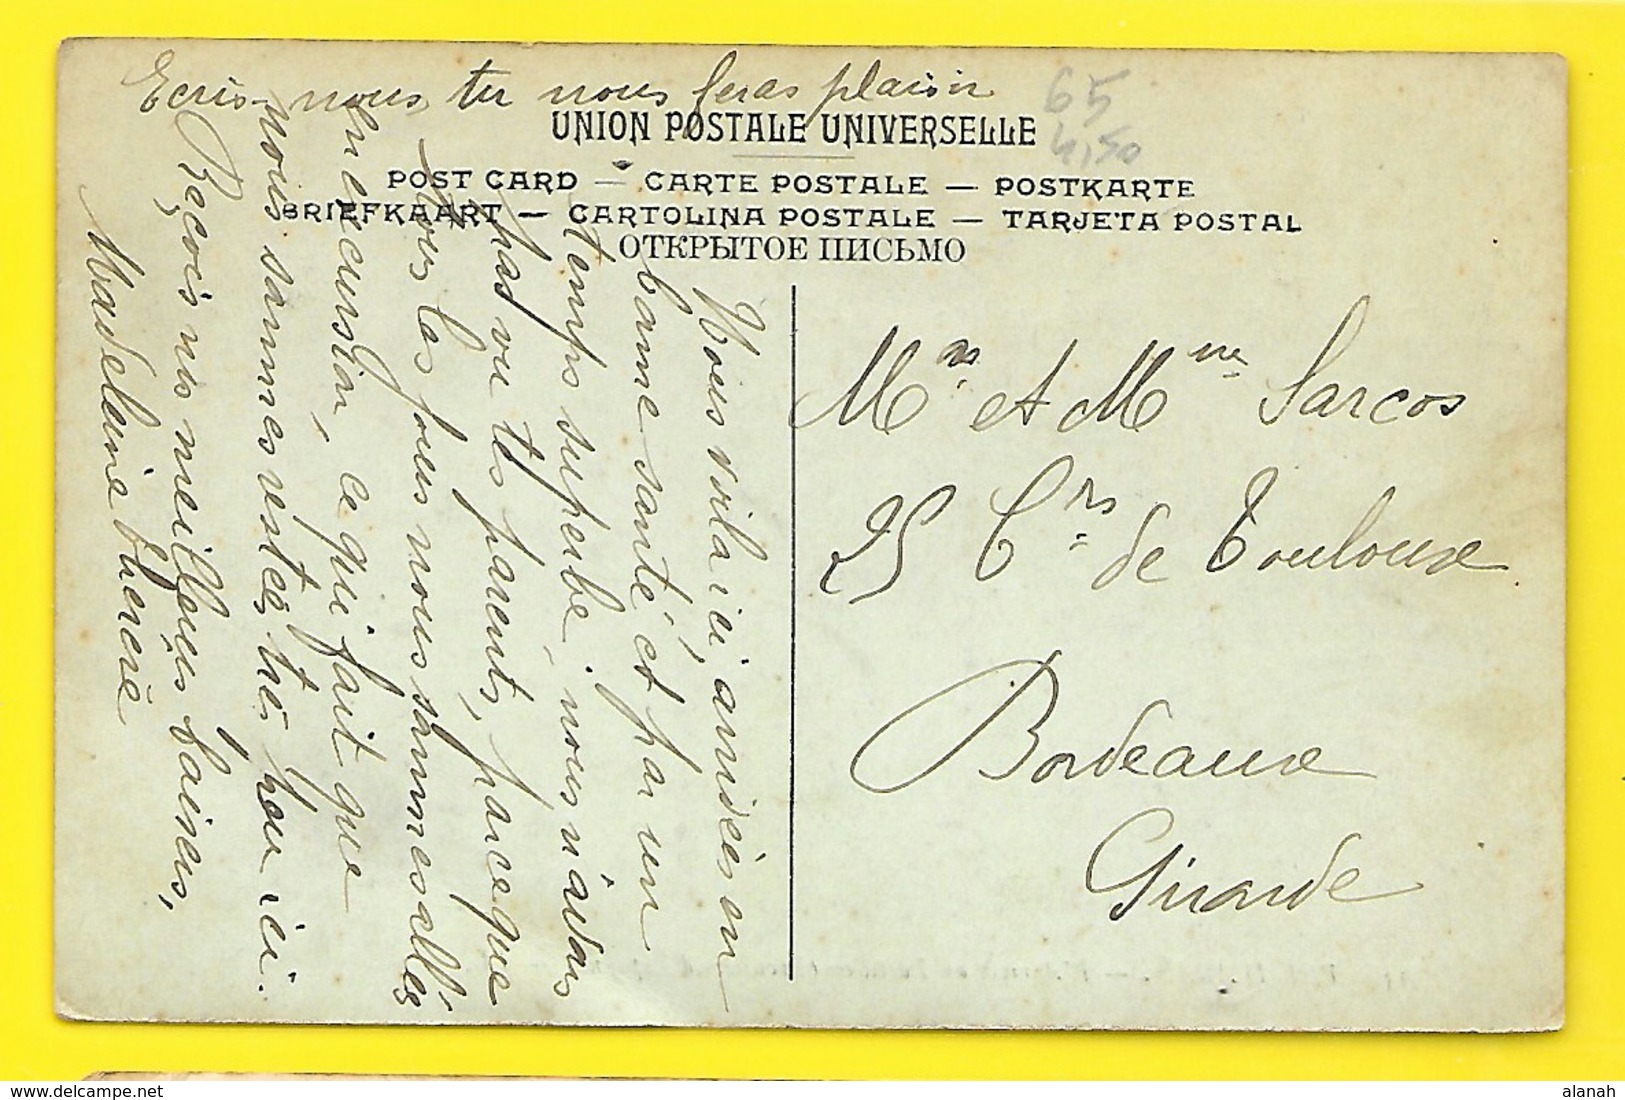 Ecris-nous, tu nous feras plaisir
65
4,50
UNION POSTALE UNIVERSELLE
POST CARD — CARTE POSTALE — POSTKARTE
BRIEFKAART — CARTOLINA POSTALE — TARJETA POSTAL
ОТКРЫТОЕ ПИСЬМО
Nous voila ici, arrivées en
bonne santé et par un
temps superbe, nous n'avons
pas vu tes parents, parce que
tous les jours nous sommes allées
en excursion, ce qui fait que
nous sommes restées très peu ici.
Reçois nos meilleures baises,
Madeleine Therèse
Mr et Mme Sarcos
25 Crs de Toulouse
Bordeaux
Gironde
alanah